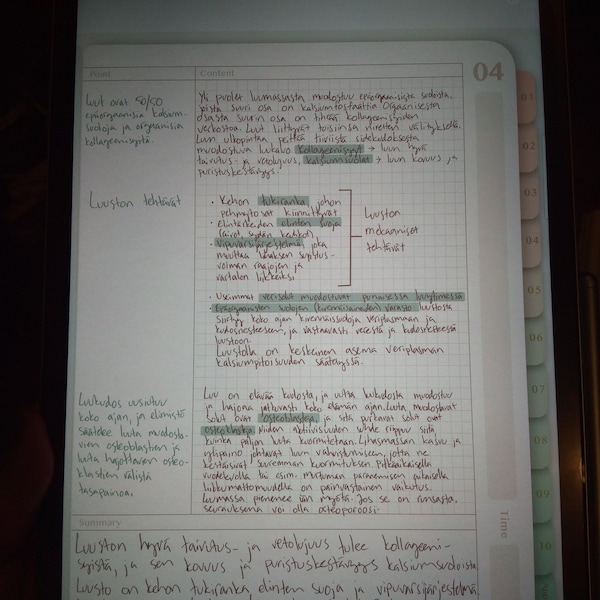 Point
Content
04
Luut ovat 50/50
epäorgaanisia kalsium-
suoloja ja orgaanisia
kollageenisyitä.
Yli puolet luumassasta muodostuu epäorgaanisista suoloista,
joista suuri osa on kalsiumfosfaattia. Orgaanisesta
osasta suurin osa on tiheää kollageenisyiden
verkostoa. Luut liittyvät toisiinsa nivelten välityksellä.
Luun ulkopintaa peittää tiiviistä sidekudoksesta
muodostuva luukalvo. Kollageenisyyt → luun hyvä
taivutus- ja vetolujuus, kalsiumsuolat → luun kovuus ja
puristuskestävyys.
Luuston tehtävät
• Kehon tukiranka, johon
pehmytosat kiinnittyvät
• Elintärkeiden elinten suoja
(aivot, sydän, keuhkot)
• Vipuvarsijärjestelmä, joka
muuttaa lihaksen supistus-
voiman raajojen ja
vartalon liikkeiksi
Luuston
mekaaniset
tehtävät
• Useimmat verisolut muodostuvat punaisessa luuytimessä
• Epäorgaanisten suolojen (kivennäisaineiden) varasto: luustosta
siirtyy koko ajan kivennäissuoloja veriplasmaan ja
kudosnesteeseen, ja vastaavasti verestä ja kudosnesteestä
luustoon.
Luustolla on keskeinen asema veriplasman
kalsiumpitoisuuden säätelyssä.
Luukudos uusiutuu
koko ajan, ja elimistö
säätelee luita muodosta-
vien osteoblastien ja
luuta hajottavien osteo-
klastien välistä
tasapainoa.
Luu on elävää kudosta, ja uutta luukudosta muodostuu
ja hajoaa jatkuvasti koko elämän ajan. Luuta muodostavat
solut ovat osteoblasteja, ja sitä purkavat solut ovat
osteoklasteja. Niiden aktiivisuuden suhde riippuu siitä
kuinka paljon luuta kuormitetaan. Lihasmassan kasvu ja
ylipaino johtavat luun vahvistumiseen, jotta ne
kestäisivät suuremman kuormituksen. Pitkäaikaisella
vuodelevolla tai esim. murtuman paranemisen aikaisella
liikkumattomuudella on päinvastainen vaikutus.
Luumassa pienenee iän myötä. Jos se on runsasta,
seurauksena voi olla osteoporoosi.
Summary
Luuston hyvä taivutus- ja vetolujuus tulee kollageeni-
syistä, ja sen kovuus ja puristuskestävyys kalsiumsuoloista.
Luusto on kehon tukiranka, elinten suoja ja vipuvarsijärjestelmä.
Time
01
02
03
04
05
06
07
08
09
10